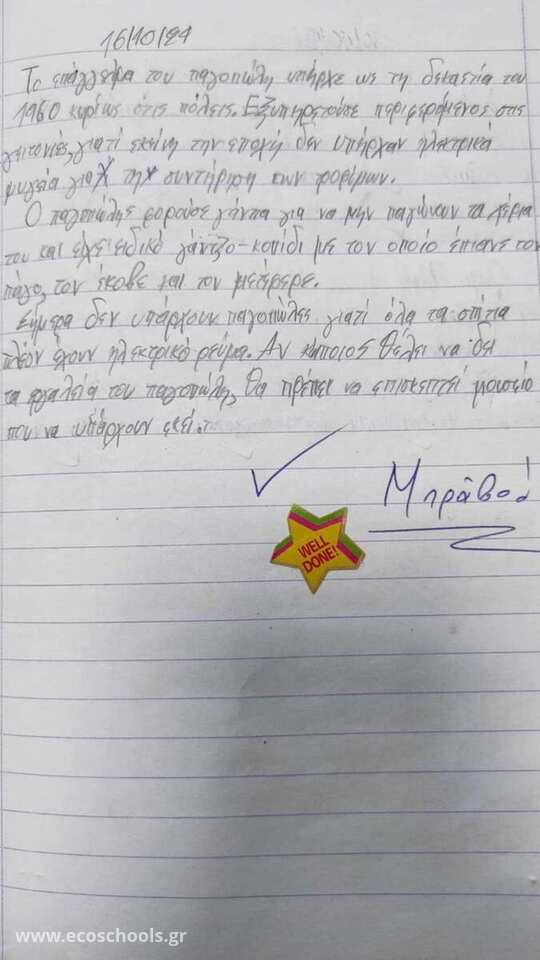 16/10/24
Το επάγγελμα του παγοπώλη υπήρχε ως τη δεκαετία του
1960 κυρίως στις πόλεις. Εξυπηρετούσε περιφερόμενος στις
γειτονιές, γιατί εκείνη την εποχή δεν υπήρχαν ηλεκτρικά
ψυγεία για τη συντήριση των τροφίμων.
Ο παγοπώλης φορούσε γάντια για να μην παγώνουν τα χέρια
του και είχε ειδικό γάντζο-κοπίδι με τον οποίο έπιανε τον
πάγο, τον έκοβε και τον μετέφερε.
Σήμερα δεν υπάρχουν παγοπώλες γιατί όλα τα σπίτια
πλέον έχουν ηλεκτρικό ρεύμα. Αν κάποιος θέλει να δει
τα εργαλεία του παγοπώλη, θα πρέπει να επισκεπτεί μουσείο
που να υπάρχουν εκεί.
Μπράβο!
WELL
DONE!
www.ecoschools.gr